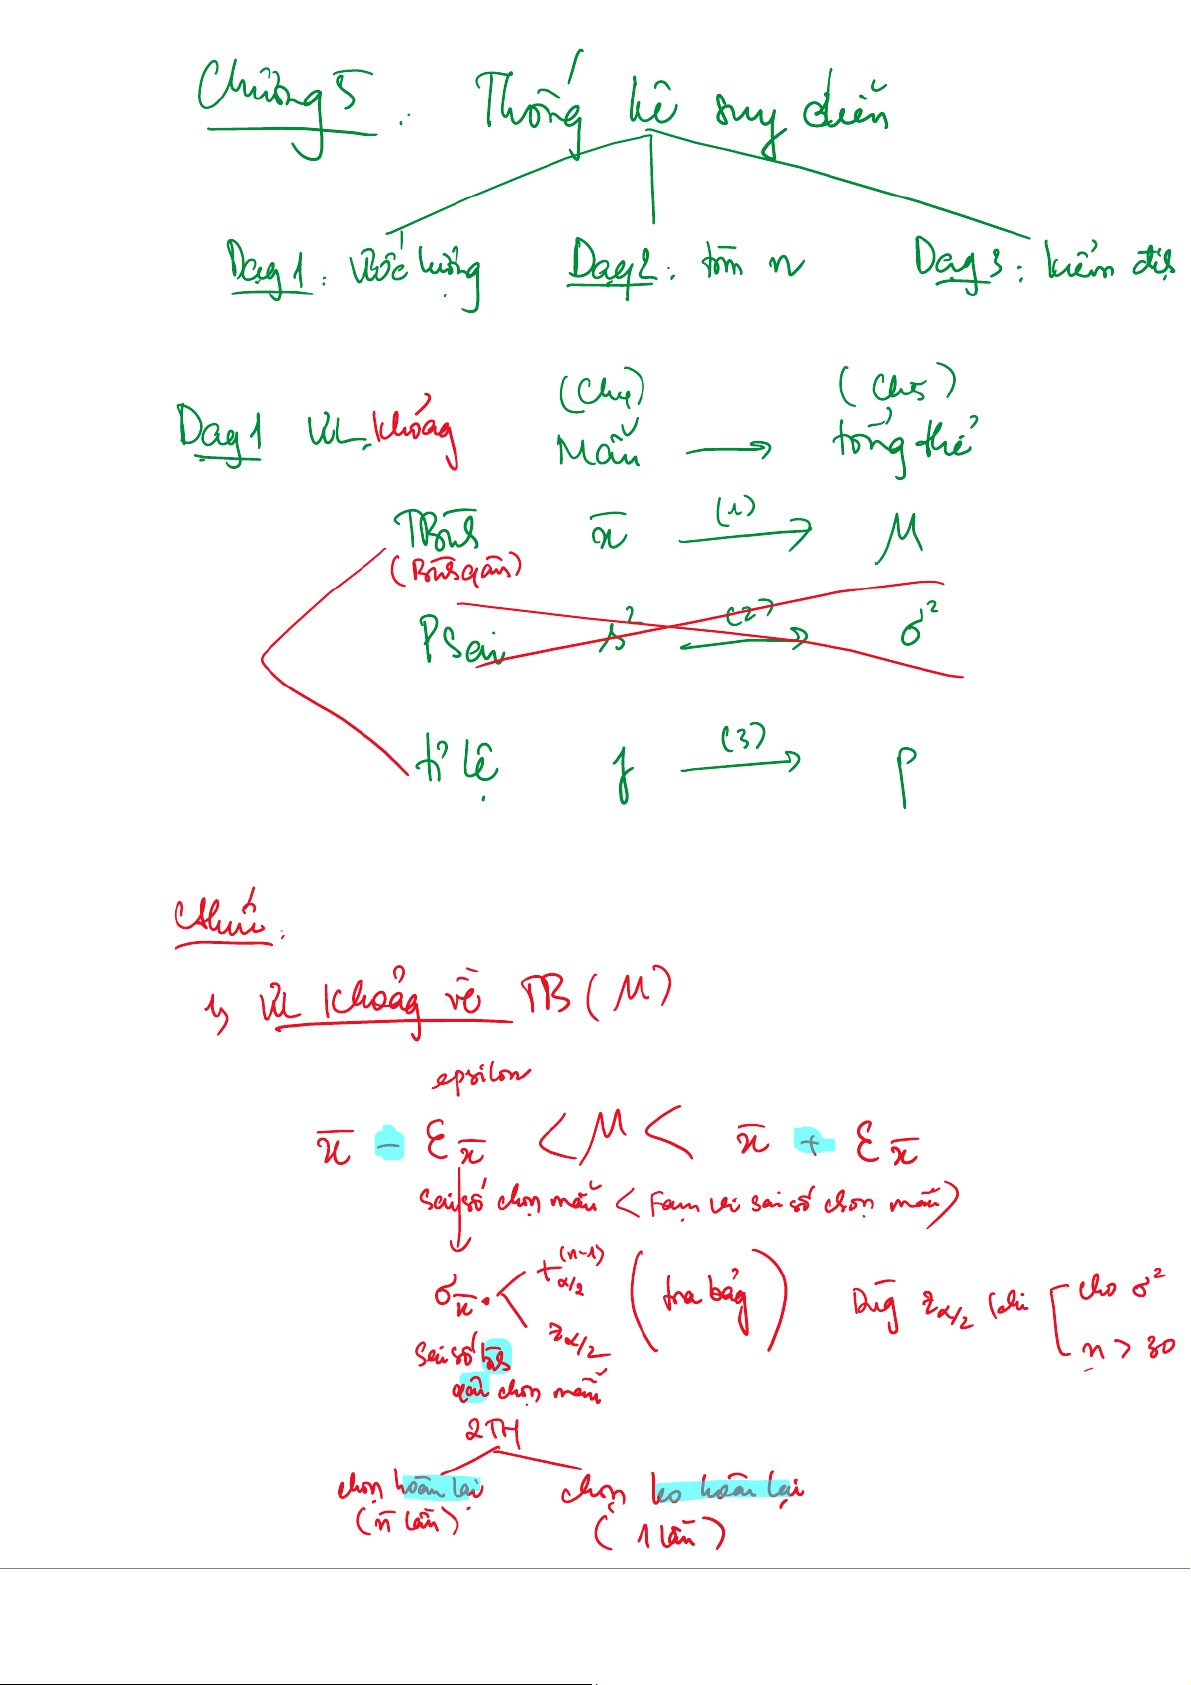 Chương 5 : Thống kê suy diễn
Dạng 1 : Ước lượng Dạng 2 : tìm n Dạng 3 : kiểm định
(Chọn) (Cho)
Dạng 1 ƯL khoảng Mẫu → tổng thể
TBình x̄ (1) → μ
(Bình quân)
P Sai s² (2) → σ²
tỉ lệ f (3) → p
1) ƯL Khoảng về TB (μ)
epsilon
x̄ - Ɛx̄ < μ < x̄ + Ɛx̄
Sai số chọn mẫu (Fạm vi sai số chọn mẫu)
σx̄ . t α/2 (n-1) (tra bảng) Dùng z α/2 khi cho σ²
z α/2 n > 30
Sai số bình
quân chọn mẫu
2TH
chọn hoàn lại chọn ko hoàn lại
(n lần) (1 lần)